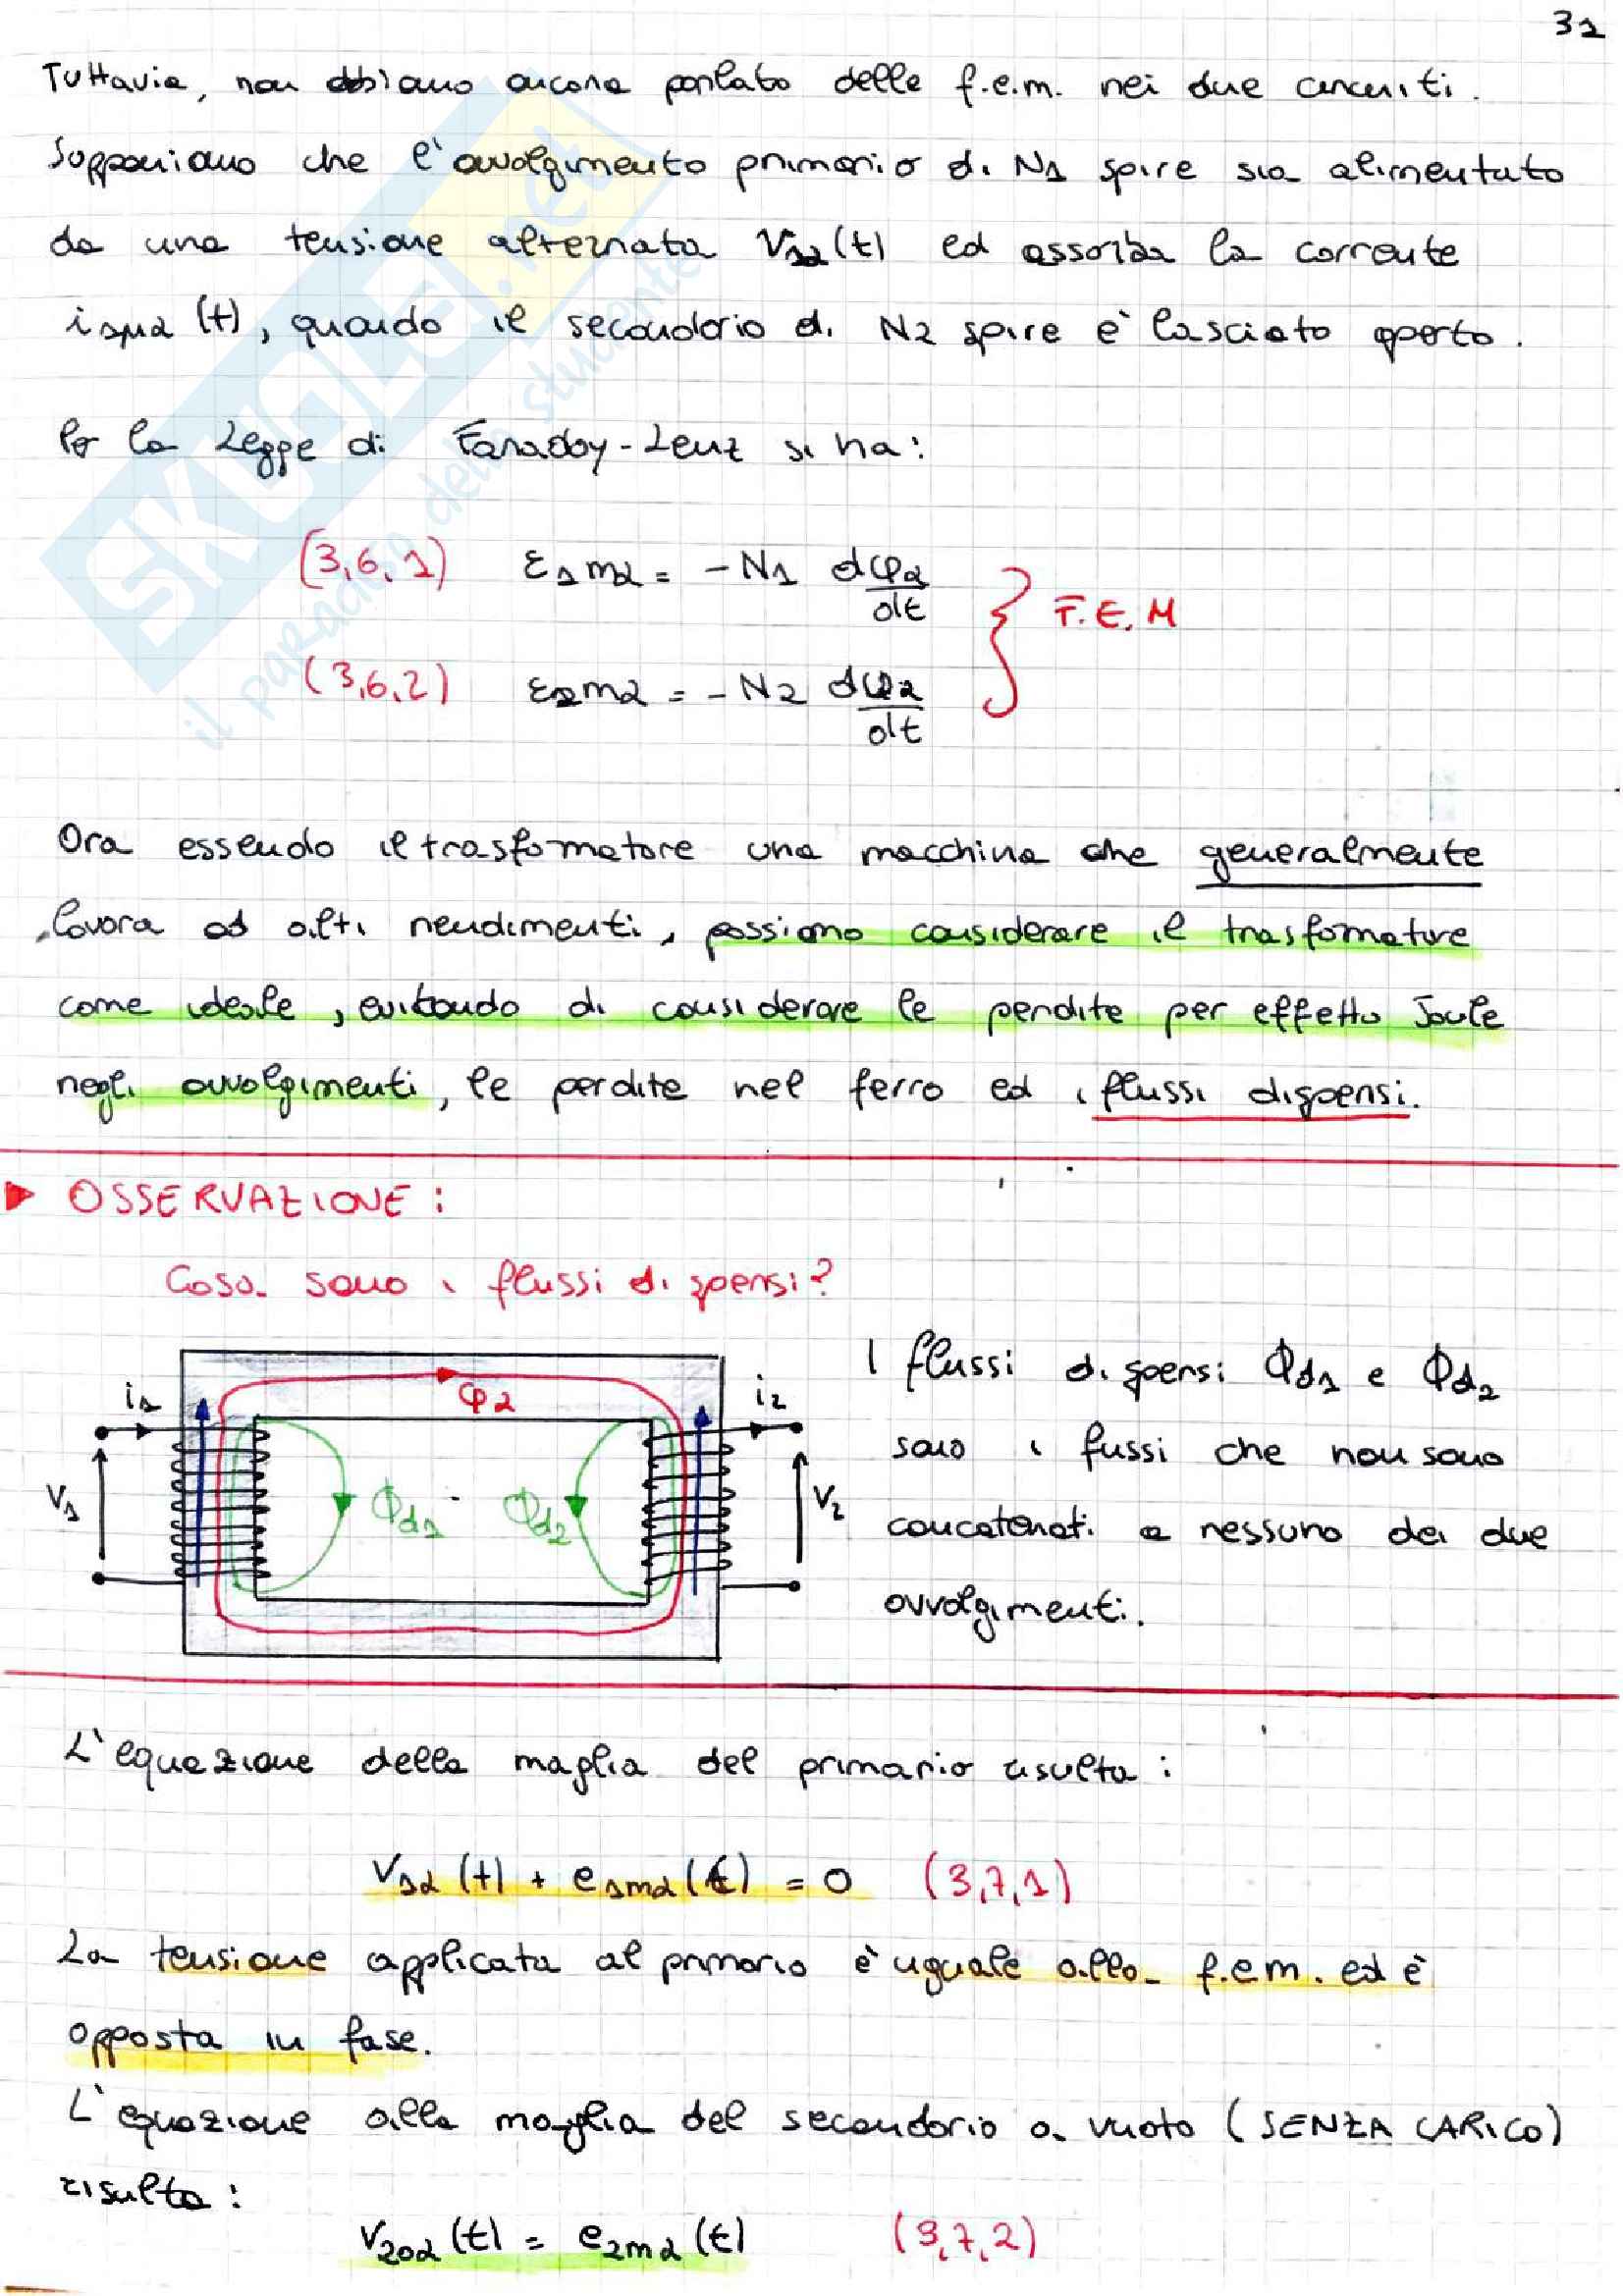 31
Tuttavia, non abbiamo ancora parlato delle f.e.m. nei due circuiti.
Supponiamo che l'avvolgimento primario di N1 spire sia alimentato
da una tensione alternata V1a(t) ed assorba la corrente
i1μa (t), quando il secondario di N2 spire è lasciato aperto.
Per la Legge di Faraday-Lenz si ha:
(3,6,1) ε1ma = -N1 dφa/dt
F.E.M
(3,6,2) ε2ma = -N2 dφa/dt
Ora essendo il trasformatore una macchina che generalmente
lavora ad alti rendimenti, possiamo considerare il trasformatore
come ideale, evitando di considerare le perdite per effetto Joule
negli avvolgimenti, le perdite nel ferro ed i flussi dispersi.
OSSERVAZIONE:
Cosa sono i flussi dispersi?
i1 φa i2
V1 Φd1 Φd2 V2
I flussi dispersi Φd1 e Φd2
sono i fussi che non sono
concatenati a nessuno dei due
avvolgimenti.
L'equazione della maglia del primario risulta:
V1a (t) + e1ma(t) = 0 (3,7,1)
La tensione applicata al primario è uguale alla f.e.m. ed è
opposta in fase.
L'equazione alla maglia del secondario a vuoto (SENZA CARICO)
risulta:
V20a (t) = e2ma (t) (3,7,2)
SKUOLA.net
il paradiso dello studente